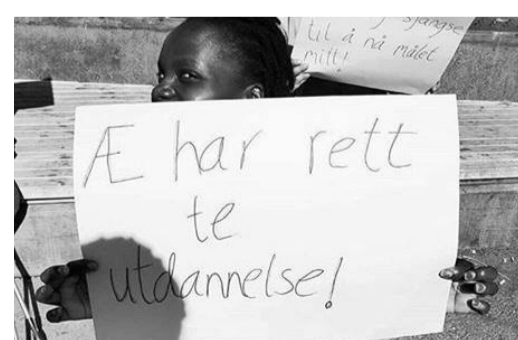 sjangse
til å nå målet
mitt!
Æ har rett
te
utdannelse!